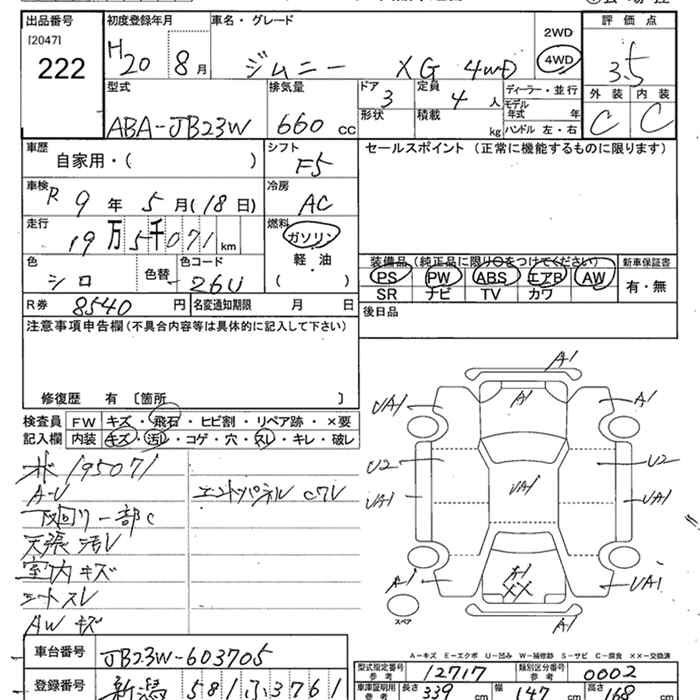 出品番号 初度登録年月 車名・グレード 評価点
[2047]
222 H20 8月 ジムニー XG 4WD 2WD 4WD 3.5
型式 排気量 ドア 定員 ディーラー・並行 外装 内装
ABA-JB23W 660 cc 3 4人 モデル年式 年 C C
形状 積載 kg ハンドル 左・右
車歴 シフト セールスポイント (正常に機能するものに限ります)
自家用・( ) F5
車検 R9年5月(18日) 冷房 AC
走行 19万5千071km 燃料 ガソリン
軽油
( )
色 シロ 色替 色コード 26U
装備品 (純正品に限り○をつけてください) 新車保証書
PS PW ABS エアB AW 有・無
SR ナビ TV カワ
R券 8540円 名変通知期限 月 日
後日品
注意事項申告欄 (不具合内容等は具体的に記入して下さい)
修復歴 有 〔箇所 〕
検査員 FW キズ・飛石・ヒビ割・リペア跡・×要
記入欄 内装 キズ・汚レ・コゲ・穴・スレ・キレ・破レ
195071
A-U エンドパネル Cワレ
下回り一部C
天張汚レ
室内キズ
シートスレ
AWキズ
A1
UA1 A1 A1
U2 U2
UA1 UA1 UA1
A1 A1 XX UA1
スペア A1
A-キズ E-エクボ U-凹み W-補修跡 S-サビ C-腐食 XX-交換済
車台番号 JB23W-603705
登録番号 新潟 581ふ3761
型式指定番号 参考 12717 類別区分番号 参考 0002
車庫証明用 参考 長さ 339cm 幅 147cm 高さ 168cm